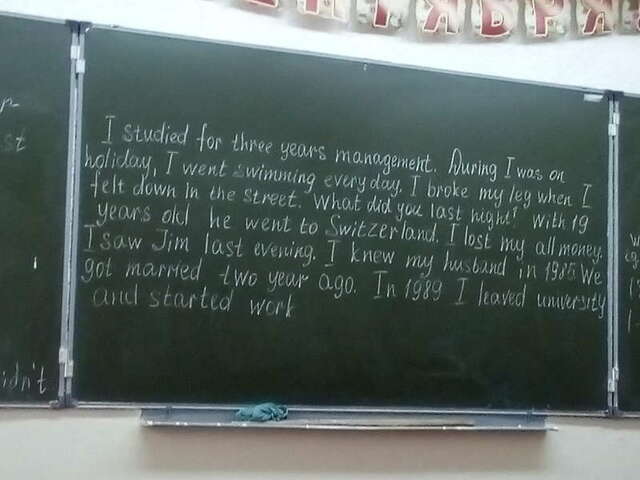 НТЯБРЯ
st
I studied for three years management. During I was on
holiday, I went swimming every day. I broke my leg when I
felt down in the street. What did you last night? With 19
years old he went to Switzerland. I lost my all money.
I saw Jim last evening. I knew my husband in 1985 We
got married two year ago. In 1989 I leaved university
and started work
idn't